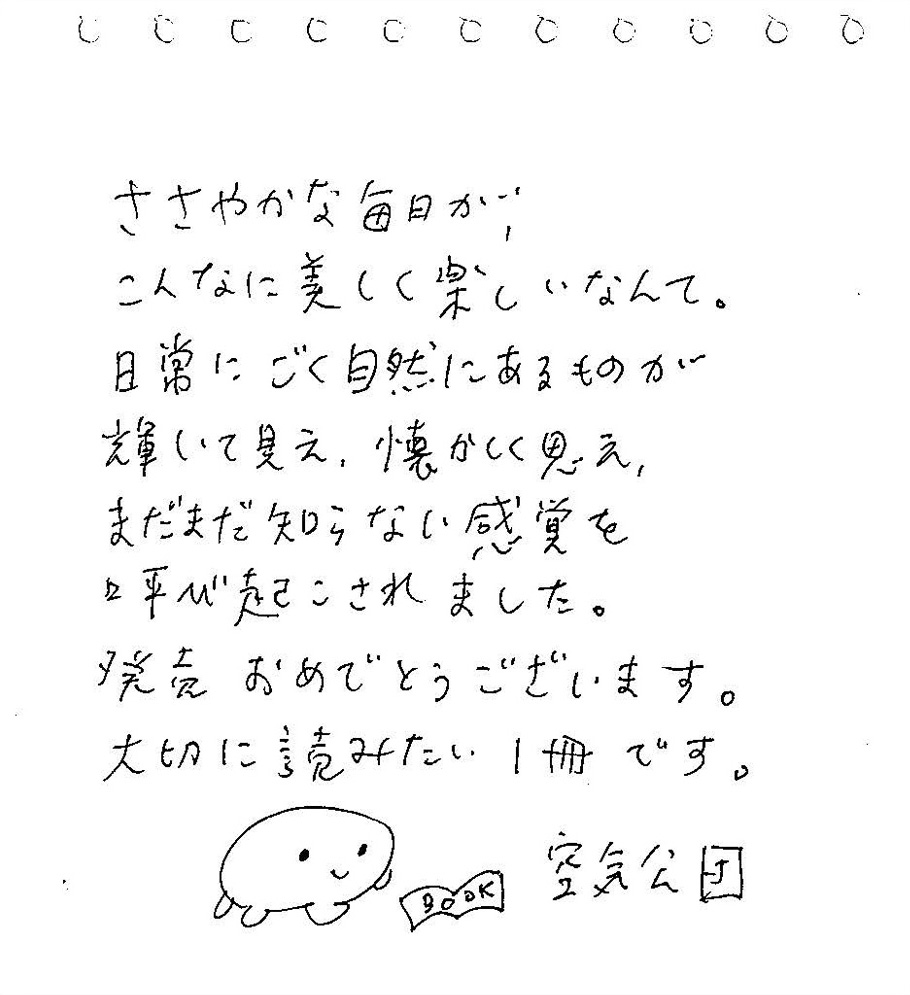 ささやかな毎日が、
こんなに美しく楽しいなんて。
日常にごく自然にあるものが
輝いて見え、懐かしく思え、
まだまだ知らない感覚を
呼び起こされました。
発売おめでとうございます。
大切に読みたい1冊です。
BOOK
空気公団